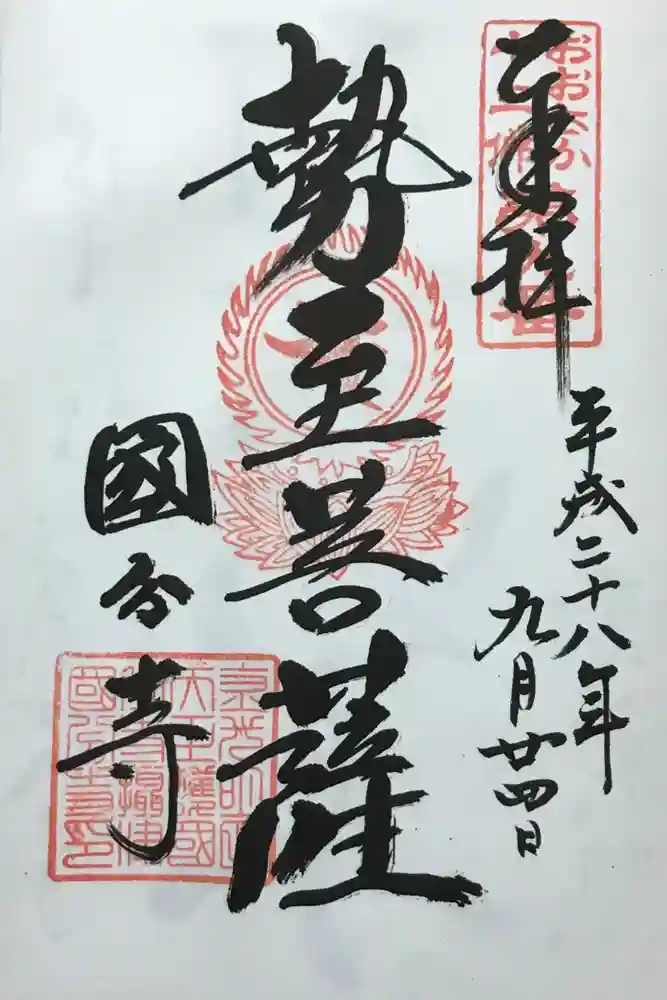 奉拝
平成二十八年
九月廿四日
勢至菩薩
國分寺